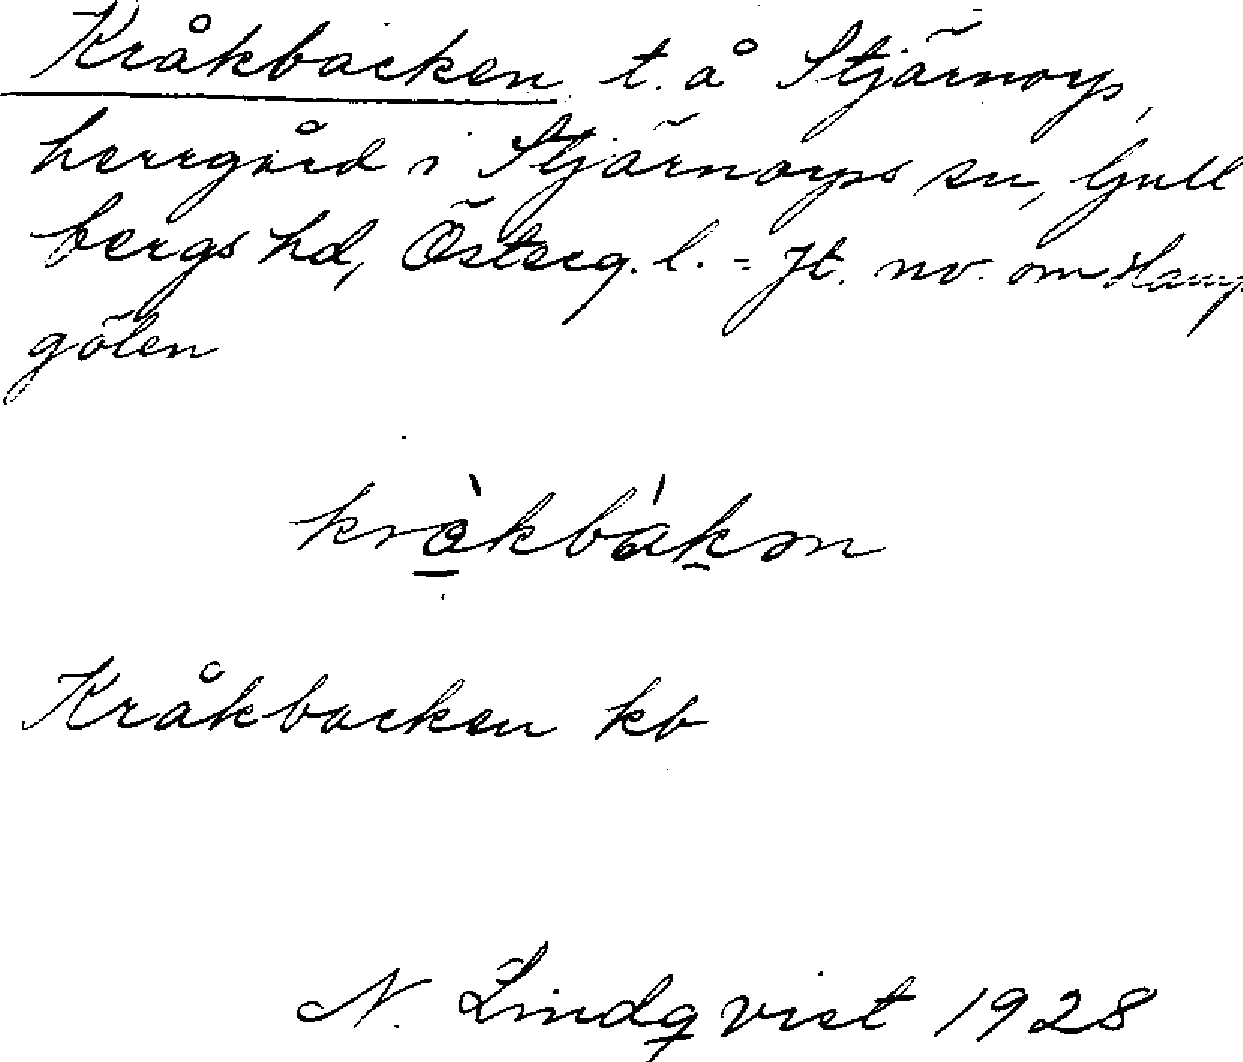 Kråkbacken t. å Stjärnorp,
herrgård i Stjärnorps sn, Gull
bergs hd, Österg. l. - Jt. nv. om Hamp
gölen
krò̠kbákən
Kråkbacken kb
N. Lindqvist 1928